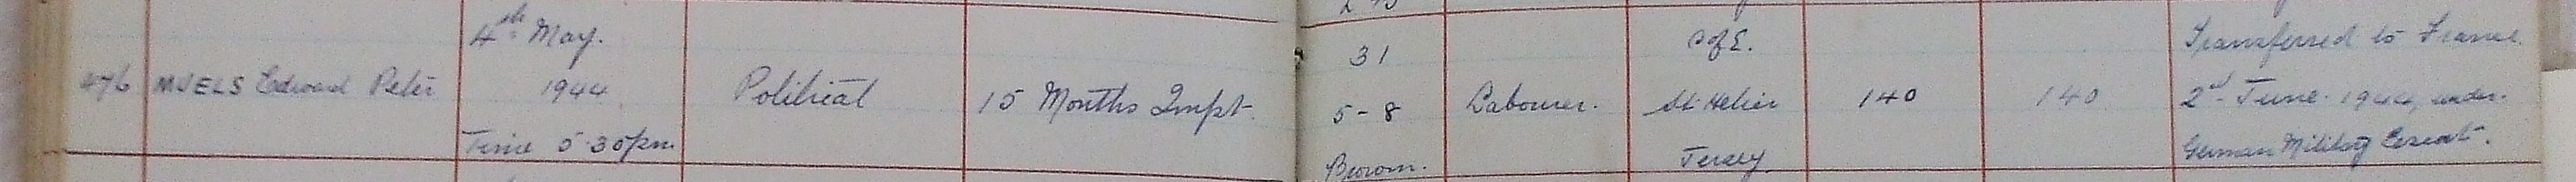 476 MUELS Edward Peter
4th May.
1944
Time 5.30pm.
Political
15 Months Impt.
31
5-8
Brown.
Labourer.
C of E.
St. Helier
Jersey
140
140
Transferred to France
2nd June 1944, under
German Military Escort.